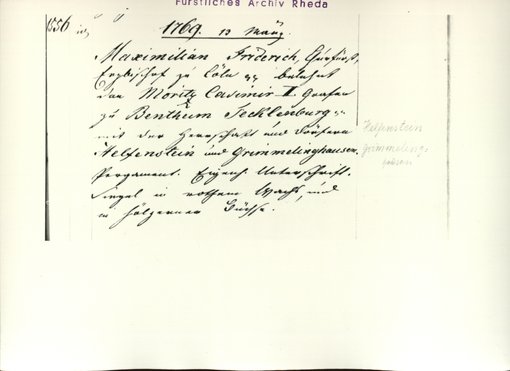 Fürstliches Archiv Rheda
1556
1769. 13 März.
Maximilian Friderich, Churfürst,
Erzbischof zu Cöln „„ belehnt
den Moritz Casimir II. Grafen
zu Bentheim Tecklenburg „„
mit der Herrschaft und Dörfern
Helfenstein und Grimmelinghausen.
Pergament. Eigenh. Unterschrift.
Siegel in rothem Wachs, und
in hölzerner Büchse.
Helfenstein
Grimmeling-
hausen